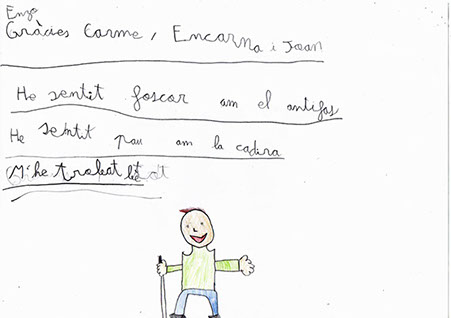 Enzo
Gràcies Carme, Encarna i Joan
He sentit foscor am el antifas
He sentit pau am la cadira
M'he trobat